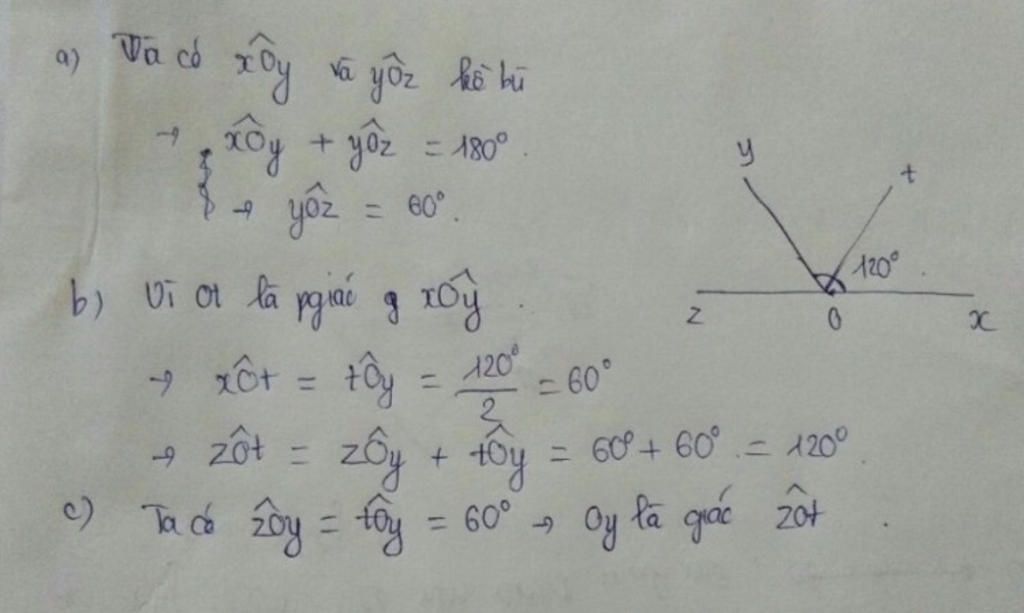 a) Ta có xÔy và yÔz kề bù
→ xÔy + yÔz = 180°.
→ yÔz = 60°.
b) Vì Ot là pgiác g xÔy.
→ xÔt = tÔy = 120°/2 = 60°
→ zÔt = zÔy + tÔy = 60° + 60° = 120°.
c) Ta có zÔy = tÔy = 60° → Oy là giác zÔt.
y
t
120°
z
O
x